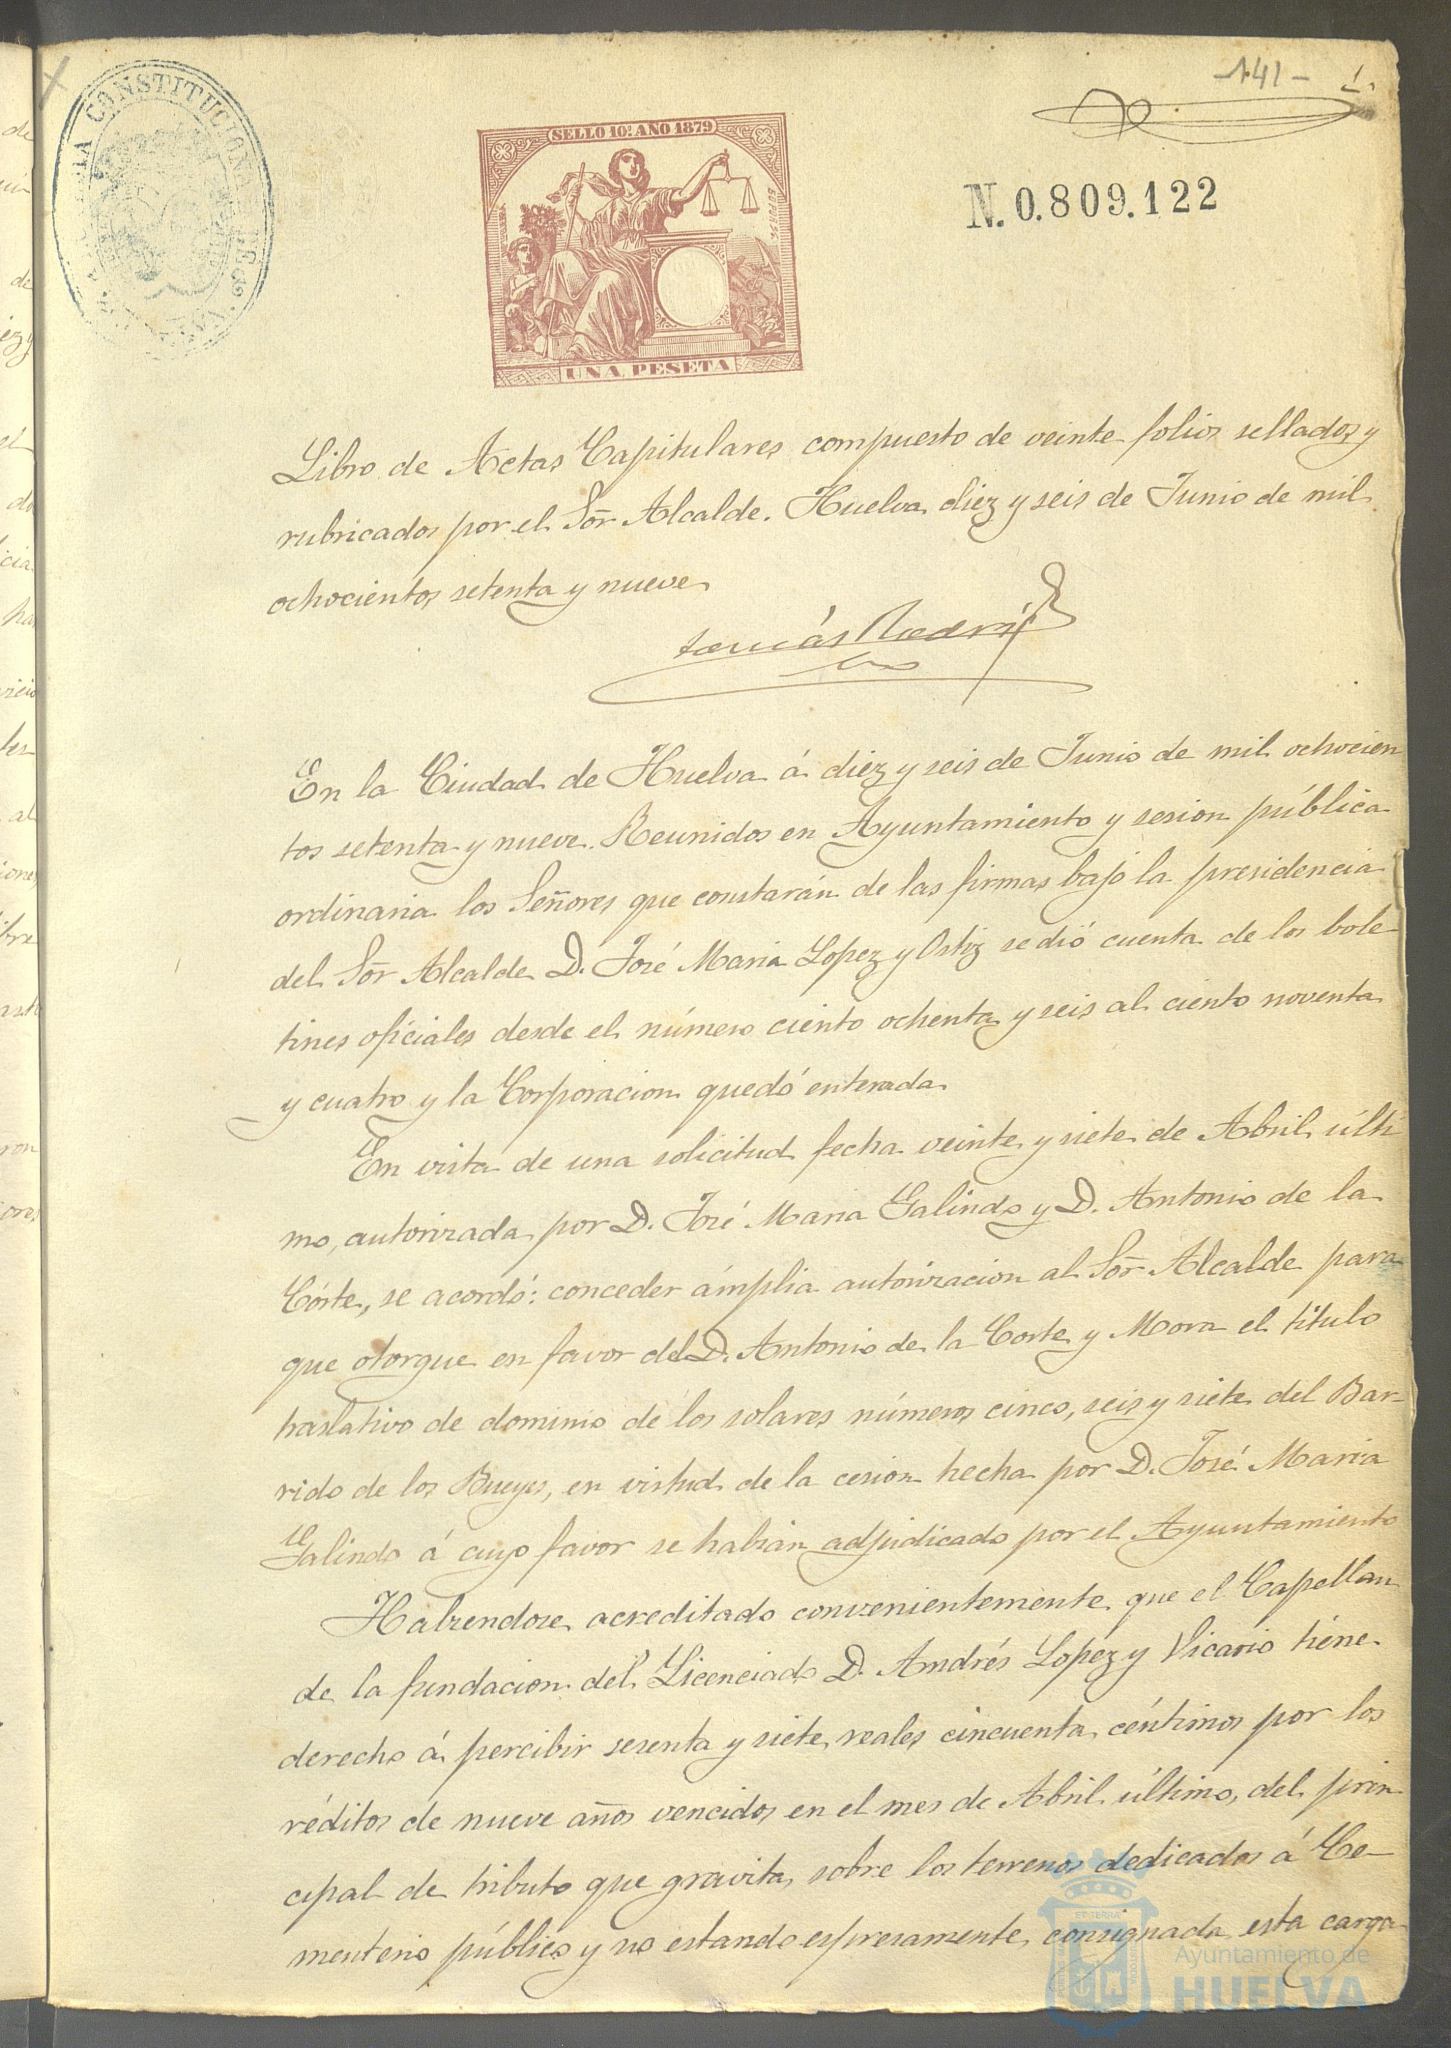 -141- 1.
ALCALDIA CONSTITUCIONAL DE HUELVA
SELLO 10.º AÑO 1879
N.0.809.122
UNA PESETA
Libro de Actas Capitulares compuesto de veinte folios sellados y
rubricados por el Sor Alcalde. Huelva diez y seis de Junio de mil
ochocientos setenta y nueve
Tomás Rodri
En la Ciudad de Huelva á diez y seis de Junio de mil ochocien
tos setenta y nueve. Reunidos en Ayuntamiento y sesion pública
ordinaria los Señores que constarán de las firmas bajo la presidencia
del Sor Alcalde D. José Maria Lopez y Ortiz se dió cuenta de los bole
tines oficiales desde el número ciento ochenta y seis al ciento noventa
y cuatro y la Corporacion quedó enterada
En vista de una solicitud fecha veinte y siete de Abril últi
mo, autorizada por D. José Maria Galindo y D. Antonio de la
Córte, se acordó: conceder ámplia autorizacion al Sor Alcalde para
que otorgue en favor del D. Antonio de la Corte y Mora el titulo
traslativo de dominio de los solares números cinco, seis y siete del Bar-
rido de los Bueyes, en virtud de la cesion hecha por D. José Maria
Galindo á cuyo favor se habian adjudicado por el Ayuntamiento
Habiendose acreditado convenientemente que el Capellan
de la fundacion del Licenciado D. Andrés Lopez y Vicario tiene
derecho á percibir sesenta y siete reales cincuenta céntimos por los
réditos de nueve años vencidos en el mes de Abril último, del prin
cipal de tributo que gravita sobre los terrenos dedicados á Ce-
menterio público y no estando espresamente consignada esta carga
Ayuntamiento de
HUELVA